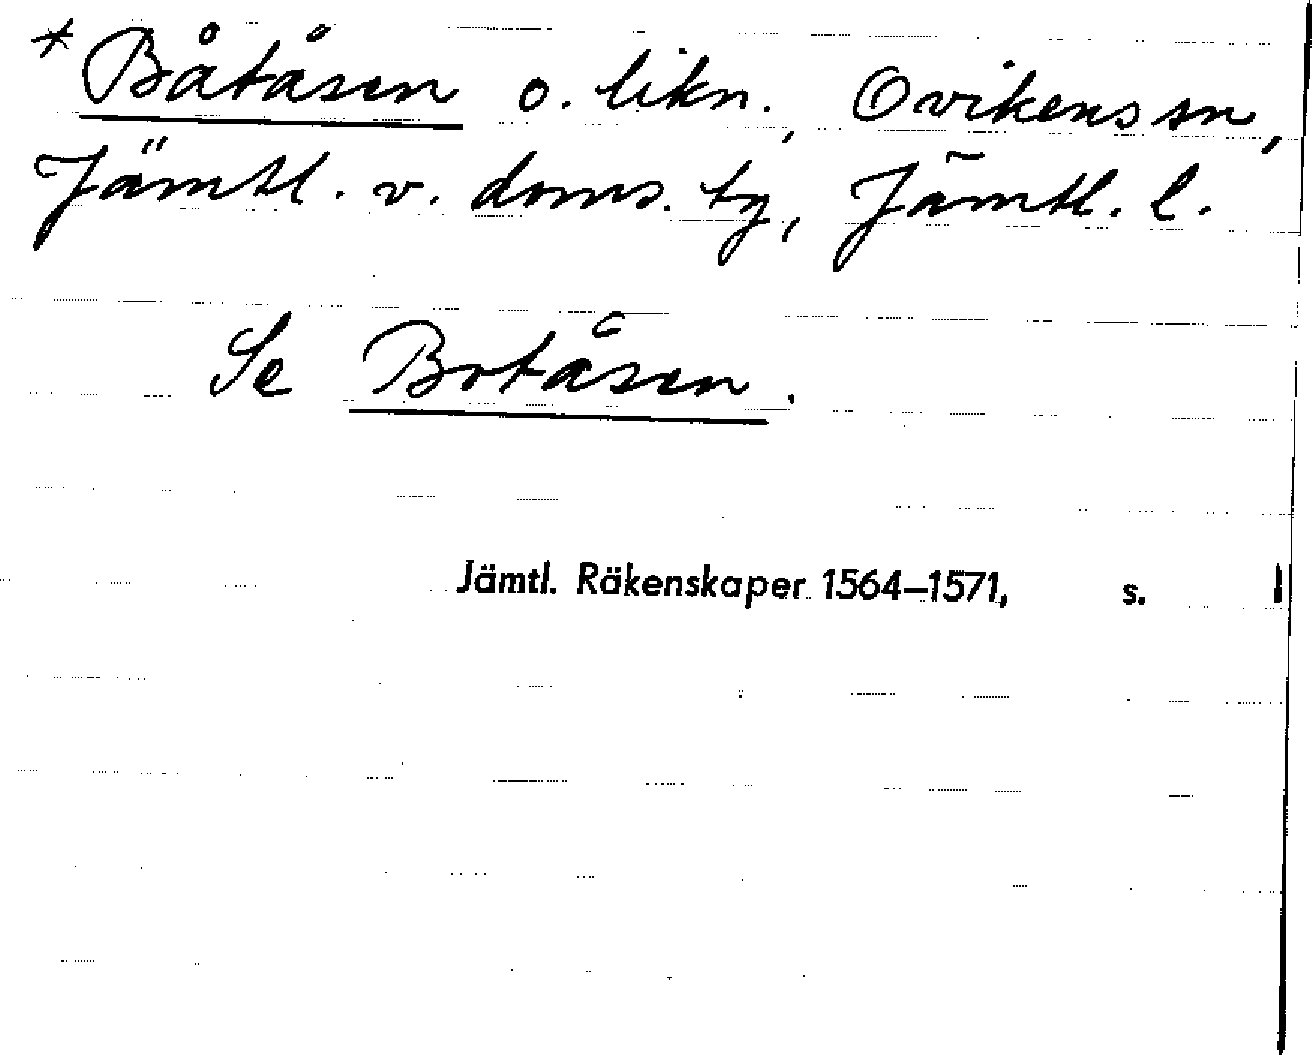 *Båtåsen o. likn., Ovikens sn,
Jämtl. v. doms. tg, Jämtl. l.
Se Botåsen.
Jämtl. Räkenskaper 1564–1571, s.